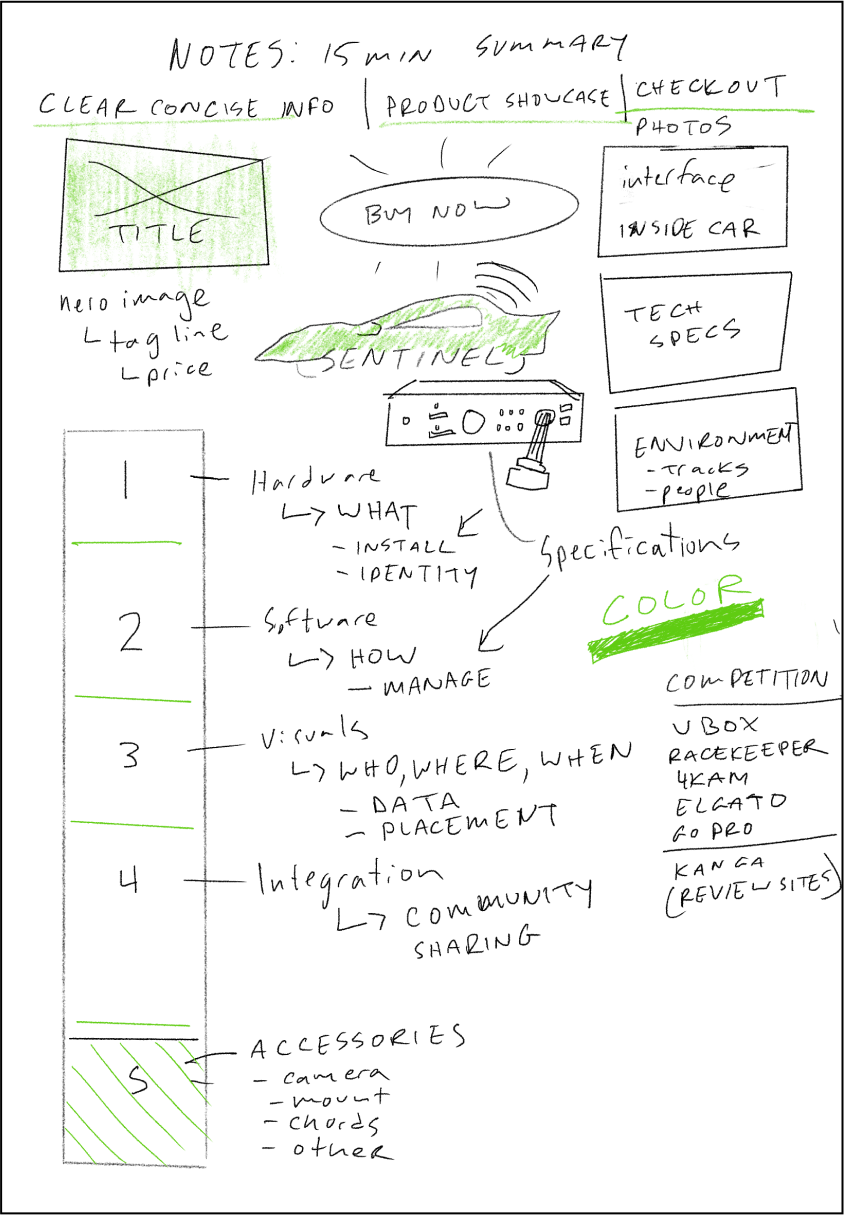 NOTES: 15 min SUMMARY
CLEAR CONCISE INFO | PRODUCT SHOWCASE | CHECKOUT
TITLE
hero image
tag line
price
BUY NOW
SENTINEL
PHOTOS
interface
INSIDE CAR
TECH
SPECS
ENVIRONMENT
- Tracks
- people
Specifications
COLOR
1
Hardware
WHAT
- INSTALL
- IDENTITY
2
Software
HOW
- MANAGE
3
Visuals
WHO, WHERE, WHEN
- DATA
- PLACEMENT
4
Integration
COMMUNITY
SHARING
5
ACCESSORIES
- camera
- mount
- chords
- other
COMPETITION
VBOX
RACEKEEPER
4KAM
ELGATO
GO PRO
KANGA
(REVIEW SITES)